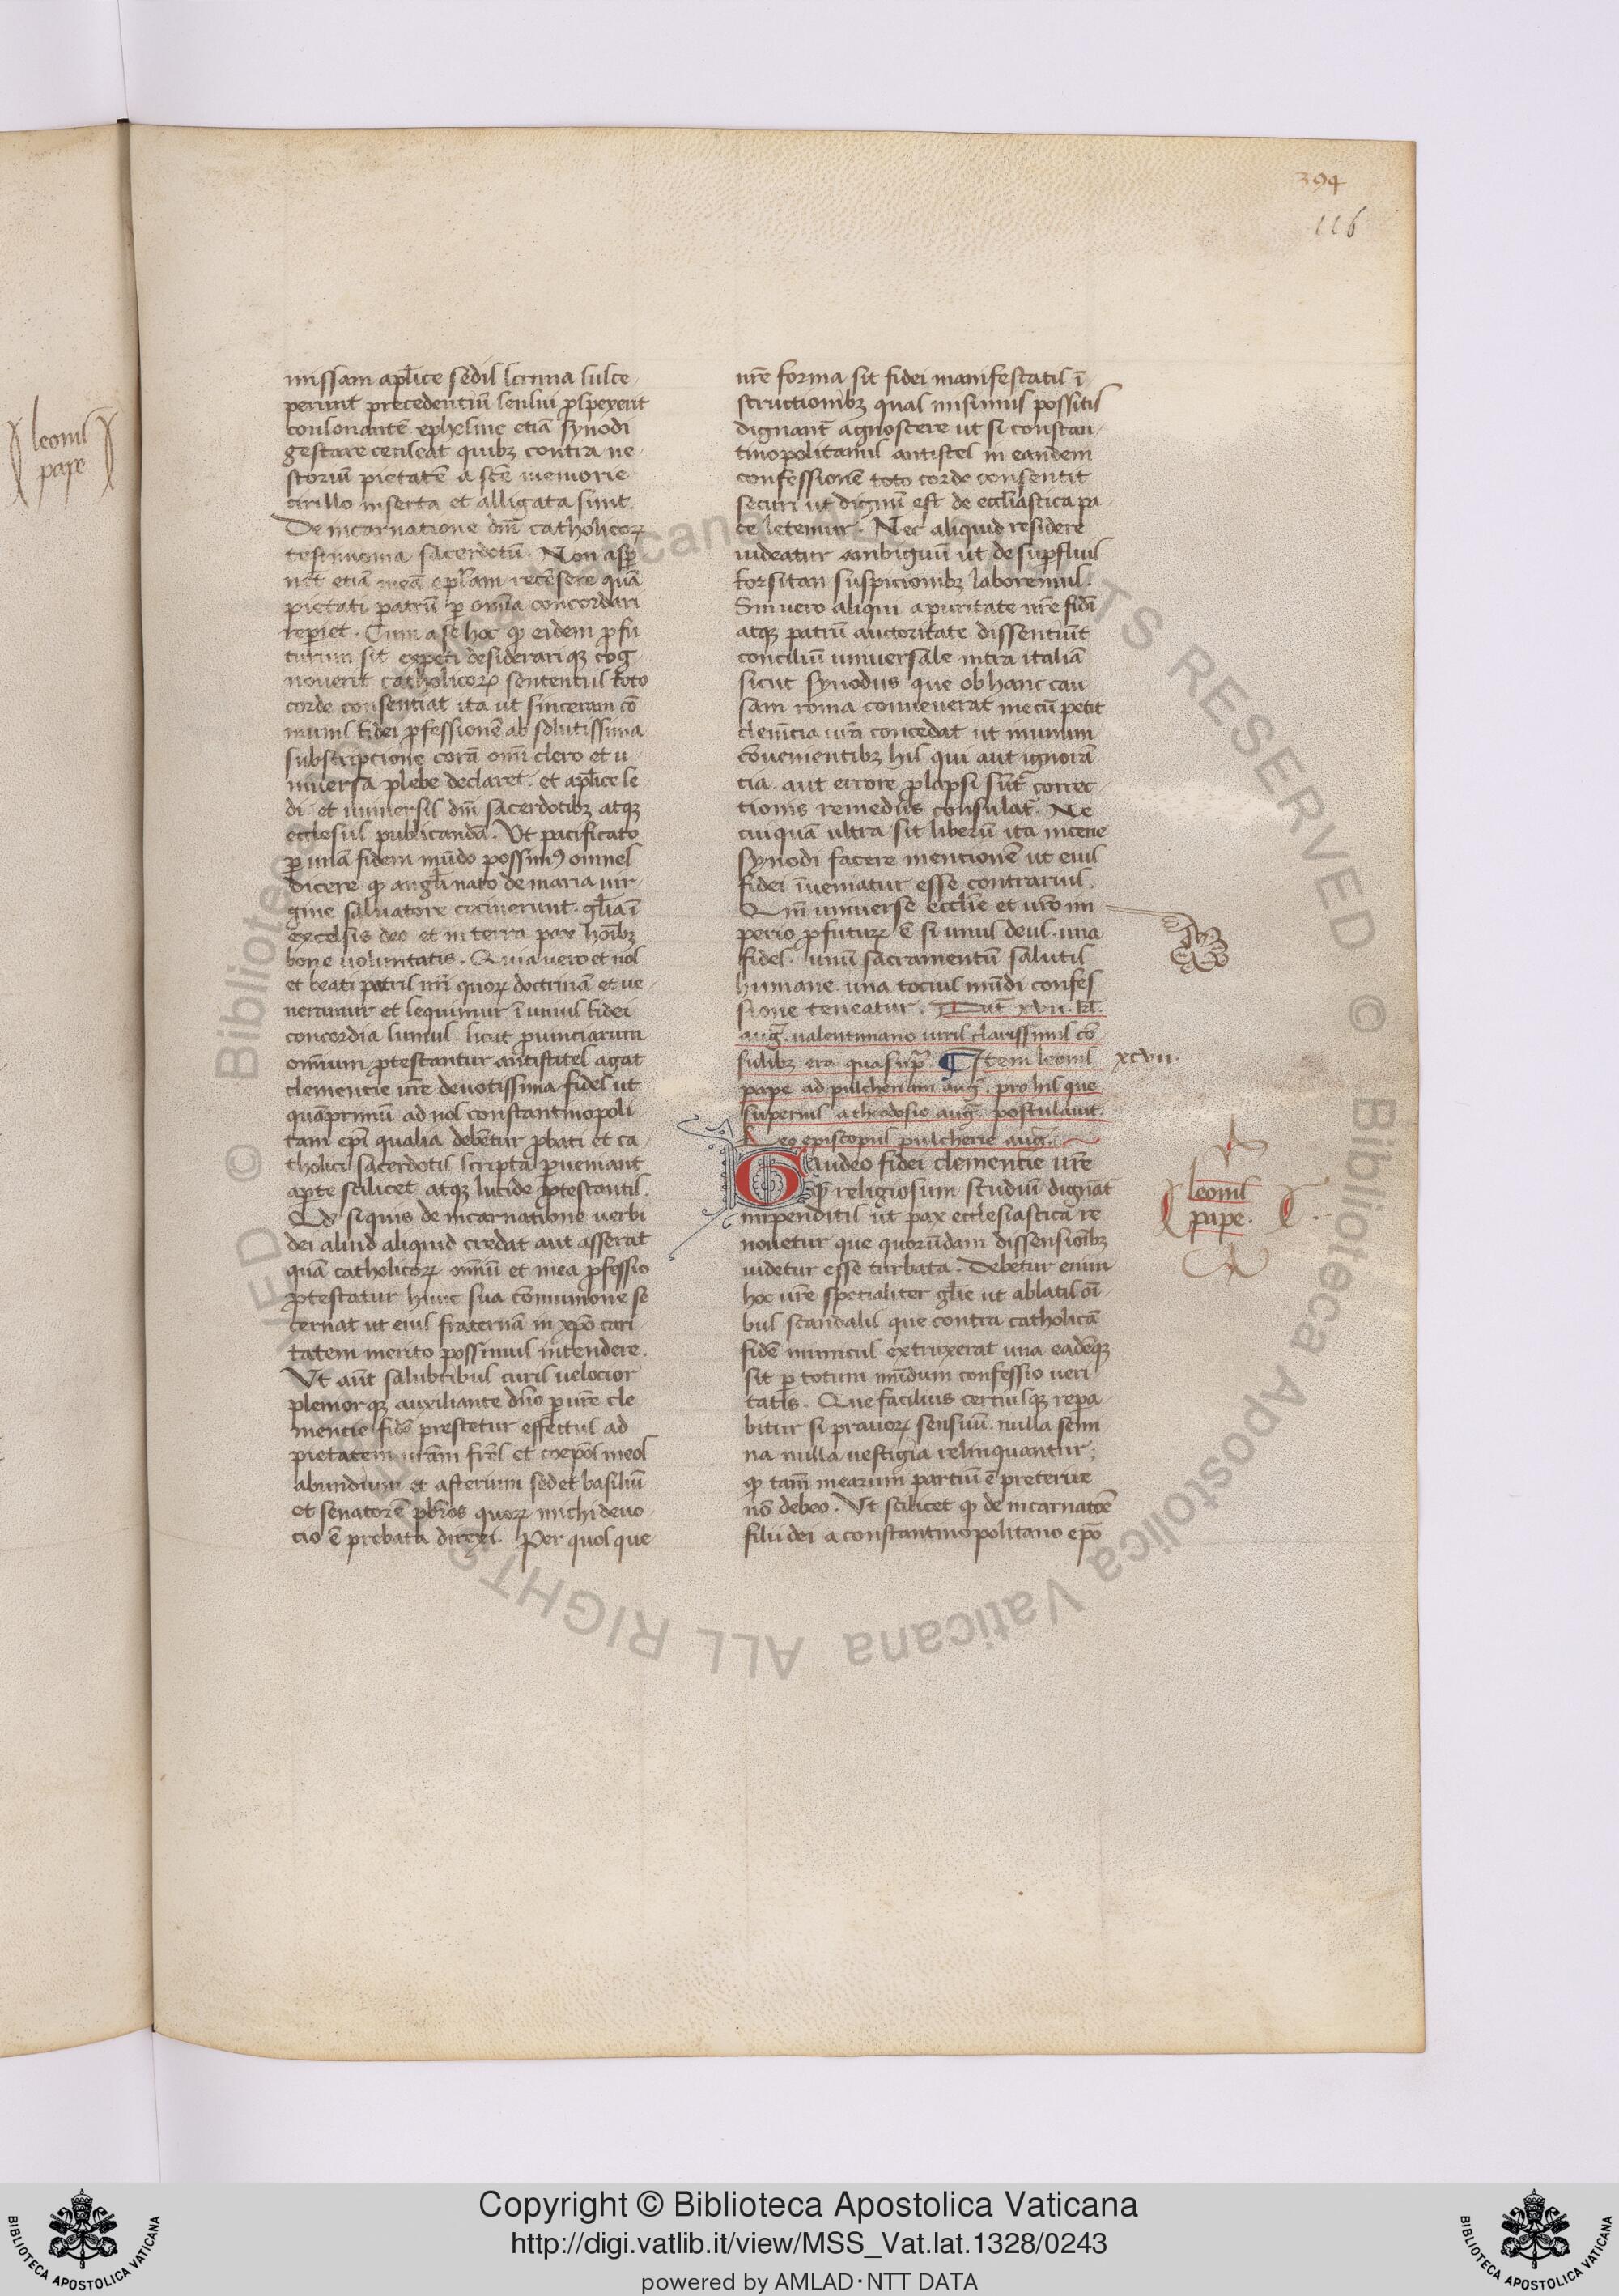 leonis
pape
394
116
missam aplice sedis scrinia susce
perunt precedentiū sensui pspexerit
consonantē ephesine etiā synodi
gestare censeat quibz contra ne
storiū pietatē a scē memorie
cirillo inserta et alligata sunt.
De incarnatione dnī catholicoꝝ
testimonia sacerdotū. Non asp
net etiā meā eplam recensere quā
pietati patrū p omīa concordari
repiet. Cum a se hoc qd eidem pfu
turum sit expeti desiderariqz cog
noverit catholicoꝝ sententiis toto
corde consentiat ita ut sinceram cō
munis fidei pfessionē ab solutissima
subscriptione corā omī clero et u
niuersa plebe declaret. et aplice se
di. et uniuersis dnī sacerdotibz atqz
ecclesiis publicandā. Vt pacificato
p unā fidem mūdo possimꝰ omnes
dicere qd angli nato de maria uir
gine saluatore cecinerunt. glia ī
excelsis deo et in terra pax hoībz
bone uoluntatis. Quia uero et nos
et beati patris nrī quoꝝ doctrinā et ue
neramur et sequimur ī unius fidei
concordia sumus. sicut puinciarum
omnium ptestantur antistites agat
clementie ure deuotissima fides ut
quāprimū ad nos constantinopoli
tam epī qualia debētur pbati et ca
tholici sacerdotis scripta pueniant
apte scilicet atqz lucide ptestantis.
Qd si quis de incarnatione uerbi
dei aliud aliquid credat aut asserat
quā catholicoꝝ omniū et mea pfessio
ptestatur hunc sua cōmunione se
cernat ut eius fraternā in xpō cari
tatem merito possimus intendere.
Vt aūt salubribus curis uelocior
pleniorqz auxiliante dno p ure cle
mencie fidē prestetur effectus ad
pietatem uram frēs et coepōs meos
abundium et asterium sed et basiliū
et senatorē pbros quoꝝ michi deuo
cio ē probata direxi. Per quos que
nrē forma sit fidei manifestatis ī
structionibz quas misimus possitis
dignant agnoscere ut si constan
tinopolitanus antistes in eandem
confessionē toto corde consentit
securi ut dignū est de eccliastica pa
ce letemur. Nec aliquid residere
uideatur ambiguū ut de supfluis
forsitan suspicionibz laboremus.
Sin uero aliqui a puritate nrē fidī
atqz patrū auctoritate dissentiūt
conciliū uniuersale intra italiā
sicut synodus que ob hanc cau
sam roma conuenerat mecū petit
clemētia ura concedat ut in unum
cōuenientibz his qui aut ignorā
cia. aut errore plapsi sūt correc
tionis remediis consulat. Ne
cuiquā ultra sit liberū ita nicene
synodi facere mencionē ut eius
fidei īueniatur esse contrarius.
Qm uniuerse ecclie et uro im
perio pfuturꝝ ē si unus deus. una
fides. unū sacramentū salutis
humane. una tocius mūdi confes
sione teneatur. Dat xvii. kl.
aug. ualentiniano uiris clarissimis cō
sulibz era qua supra. ¶ Item leonis xcvii.
pape ad pulcheriam aug. pro his que
superius a theodosio aug. postulauit.
Leo episcopus pulcherie aug.
Gaudeo fidei clementie ure
qd religiosum studiū dignat
impenditis ut pax ecclesiastica re
nouetur que quorūdam dissensiōibz
uidetur esse turbata. Debetur enim
hoc ure specialiter glie ut ablatis oī
bus scandalis que contra catholicā
fidē inimicus extruxerat una eadēqz
sit p totum mūdum confessio ueri
tatis. Que facilius certiusqz repa
bitur si prauoꝝ sensuū. nulla semi
na nulla uestigia relinquantur;
qd tam mearum partiū ē preterire
nō debeo. Vt scilicet qd de incarnatōe
filii dei a constantinopolitano epō
leonis
pape.
Copyright © Biblioteca Apostolica Vaticana
http://digi.vatlib.it/view/MSS_Vat.lat.1328/0243
powered by AMLAD·NTT DATA
BIBLIOTECA APOSTOLICA VATICANA
BIBLIOTECA APOSTOLICA VATICANA